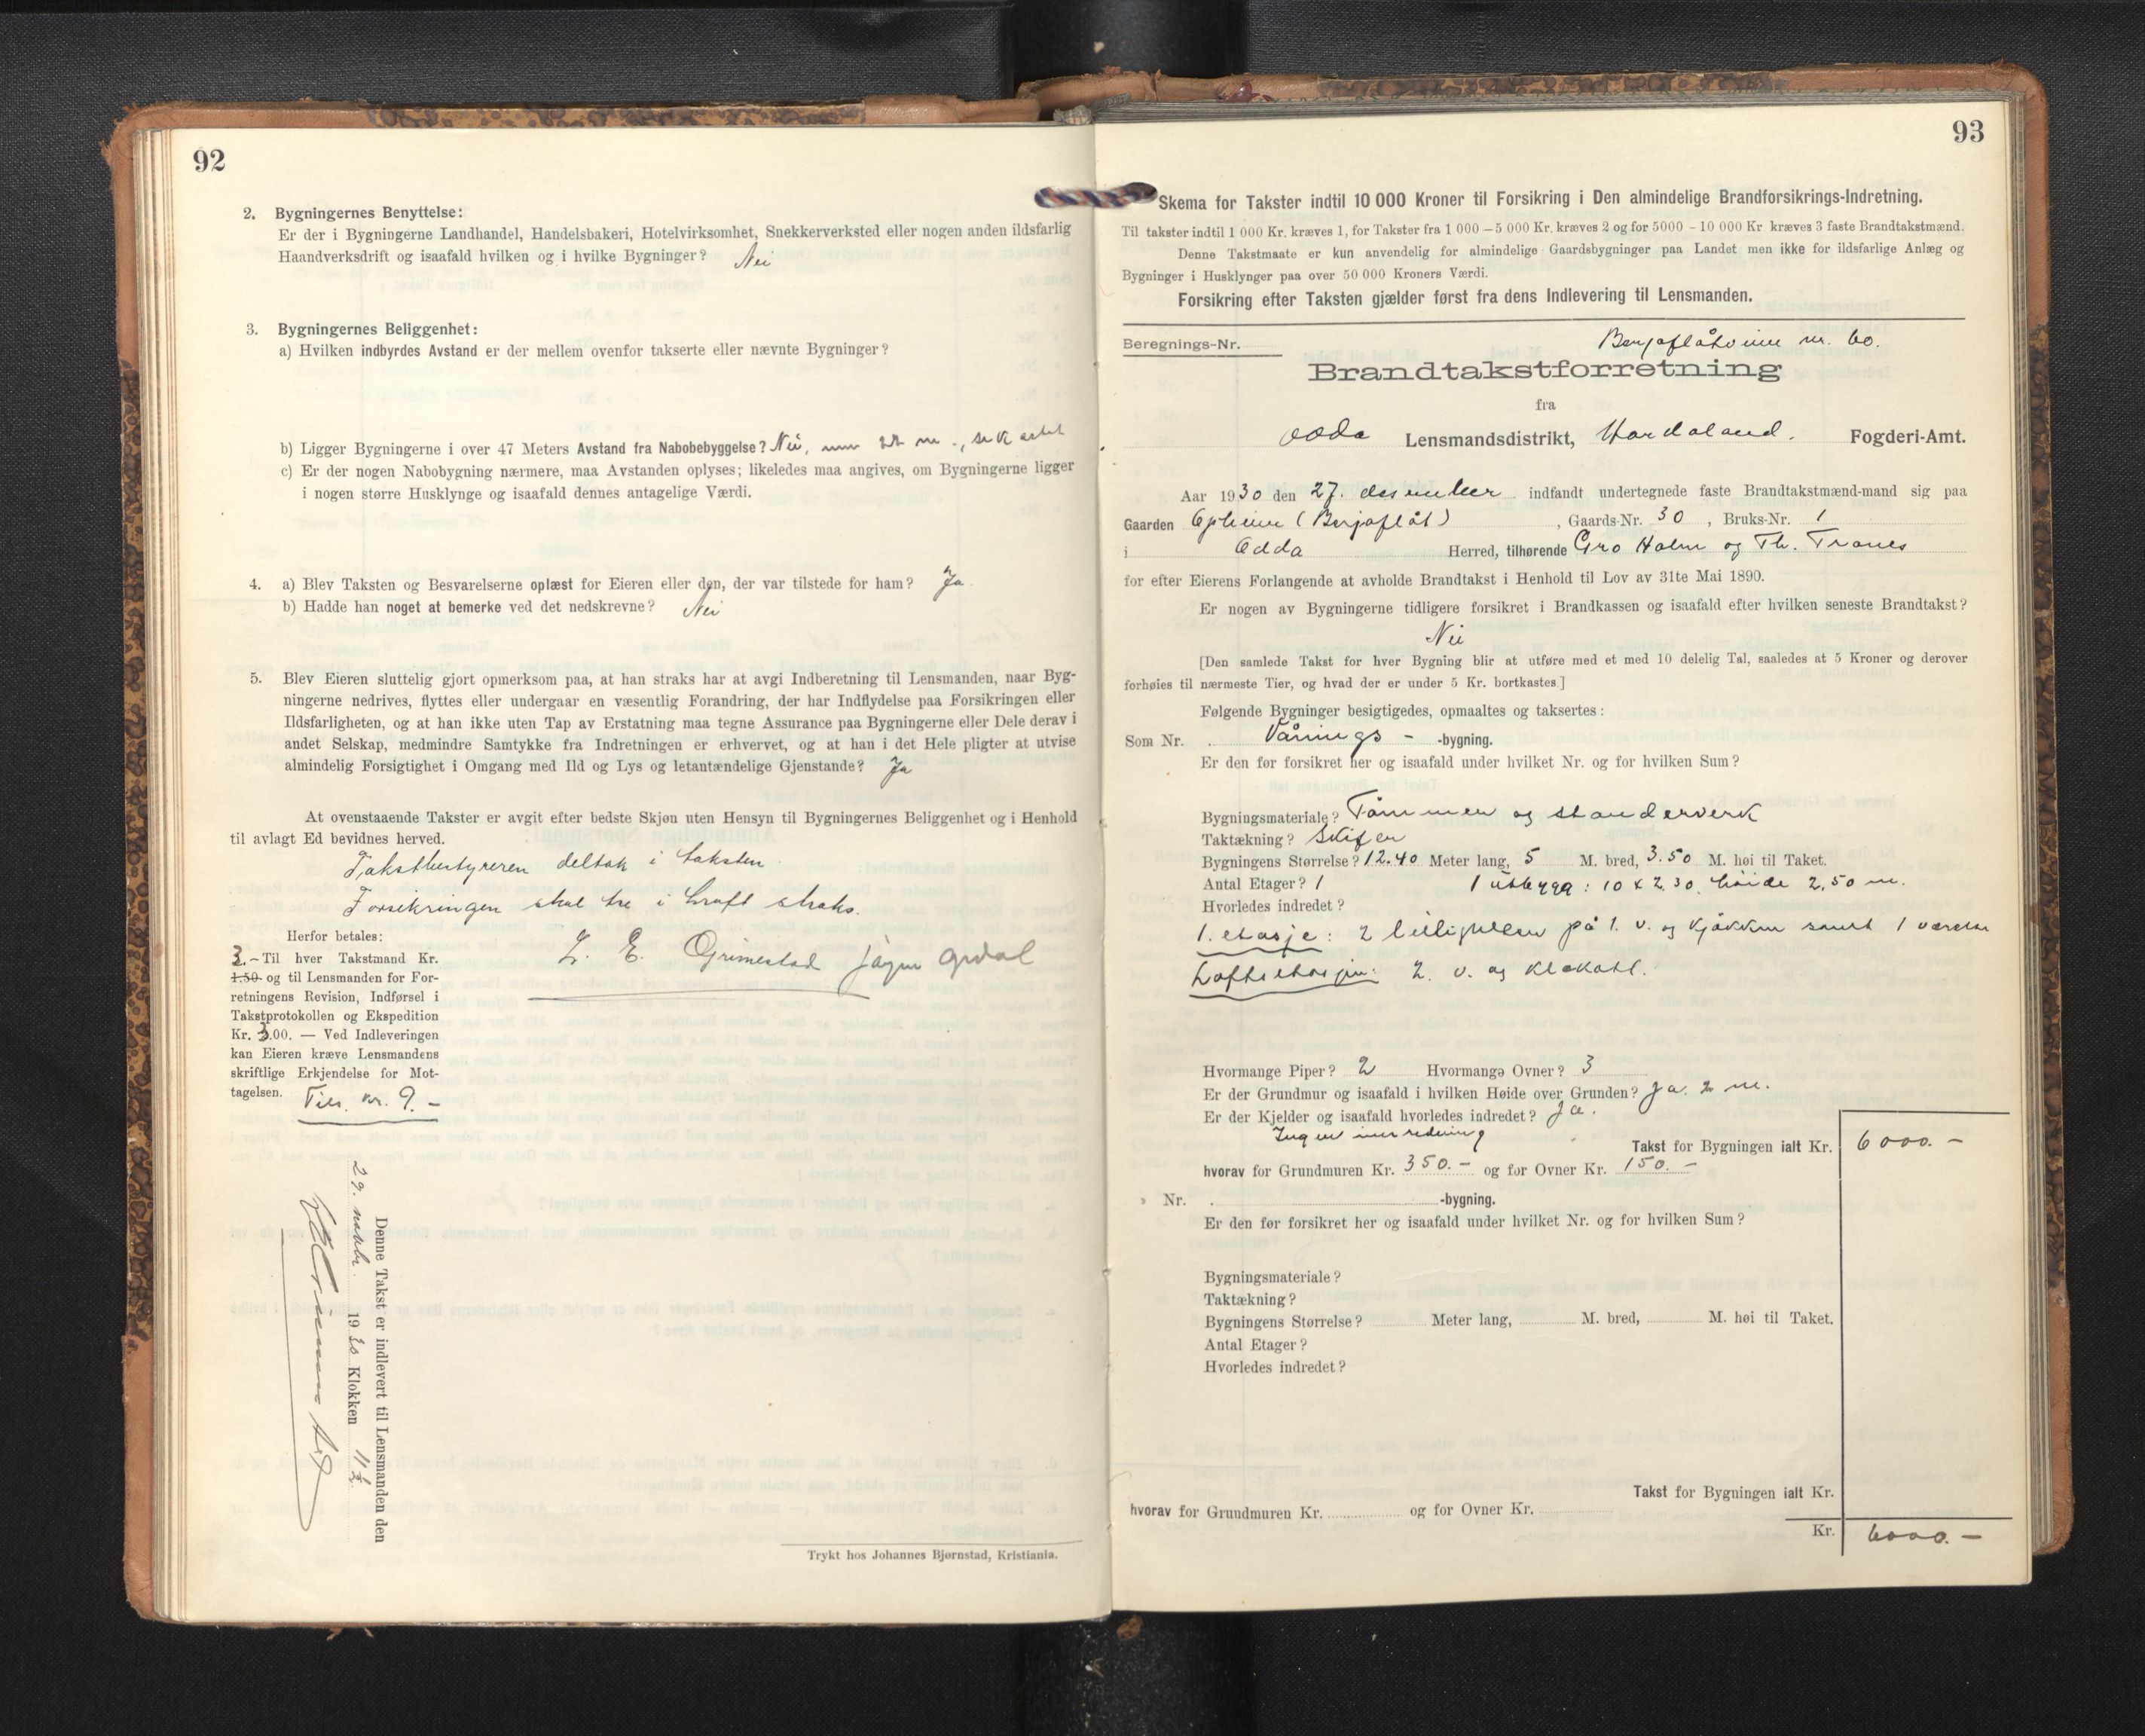 92
2. Bygningernes Benyttelse:
Er der i Bygningerne Landhandel, Handelsbakeri, Hotelvirksomhet, Snekkerverksted eller nogen anden ildsfarlig
Haandverksdrift og isaafald hvilken og i hvilke Bygninger? Nei
3. Bygningernes Beliggenhet:
a) Hvilken indbyrdes Avstand er der mellem ovenfor takserte eller nævnte Bygninger?
b) Ligger Bygningerne i over 47 Meters Avstand fra Nabobebyggelse? Nei, m.
c) Er der nogen Nabobygning nærmere, maa Avstanden oplyses; likeledes maa angives, om Bygningerne ligger
i nogen større Husklynge og isaafald dennes antagelige Værdi.
4. a) Blev Taksten og Besvarelserne oplæst for Eieren eller den, der var tilstede for ham? Ja
b) Hadde han noget at bemerke ved det nedskrevne? Nei
5. Blev Eieren sluttelig gjort opmerksom paa, at han straks har at avgi Indberetning til Lensmanden, naar Byg-
ningerne nedrives, flyttes eller undergaar en væsentlig Forandring, der har Indflydelse paa Forsikringen eller
Ildsfarligheten, og at han ikke uten Tap av Erstatning maa tegne Assurance paa Bygningerne eller Dele derav i
andet Selskap, medmindre Samtykke fra Indretningen er erhvervet, og at han i det Hele pligter at utvise
almindelig Forsigtighet i Omgang med Ild og Lys og letantændelige Gjenstande? Ja
At ovenstaaende Takster er avgit efter bedste Skjøn uten Hensyn til Bygningernes Beliggenhet og i Henhold
til avlagt Ed bevidnes herved.
Takstbestyreren deltok i taksten
Forsikringen skal tre i kraft straks.
L. E. Grimestad
Herfor betales:
3.- Til hver Takstmand Kr.
1.50 og til Lensmanden for For-
retningens Revision, Indførsel i
Takstprotokollen og Ekspedition
Kr. 3.00. — Ved Indleveringen
kan Eieren kræve Lensmandens
skriftlige Erkjendelse for Mot-
tagelsen. Tils. kr. 9.-
Denne Takst er indlevert til Lensmanden den
29. 19 30 Klokken 11½
Trykt hos Johannes Bjørnstad, Kristiania.
93
Skema for Takster indtil 10 000 Kroner til Forsikring i Den almindelige Brandforsikrings-Indretning.
Til takster indtil 1 000 Kr. kræves 1, for Takster fra 1 000 – 5 000 Kr. kræves 2 og for 5000 – 10 000 Kr kræves 3 faste Brandtakstmænd.
Denne Takstmaate er kun anvendelig for almindelige Gaardsbygninger paa Landet men ikke for ildsfarlige Anlæg og
Bygninger i Husklynger paa over 50 000 Kroners Værdi.
Forsikring efter Taksten gjælder først fra dens Indlevering til Lensmanden.
Beregnings-Nr.
Berjaflåtheim nr. 60.
Brandtakstforretning
fra
Odda Lensmandsdistrikt, Hordaland. Fogderi-Amt.
Aar 1930 den 27. desember indfandt undertegnede faste Brandtakstmænd-mand sig paa
Gaarden Opheim (Berjaflåt), Gaards-Nr. 30, Bruks-Nr. 1
i Odda Herred, tilhørende Gro Holm og Th. Tranes
for efter Eierens Forlangende at avholde Brandtakst i Henhold til Lov av 31te Mai 1890.
Er nogen av Bygningerne tidligere forsikret i Brandkassen og isaafald efter hvilken seneste Brandtakst?
Nei
[Den samlede Takst for hver Bygning blir at utføre med et med 10 delelig Tal, saaledes at 5 Kroner og derover
forhøies til nærmeste Tier, og hvad der er under 5 Kr. bortkastes.]
Følgende Bygninger besigtigedes, opmaaltes og taksertes:
Som Nr. Vånings - -bygning.
Er den før forsikret her og isaafald under hvilket Nr. og for hvilken Sum?
Bygningsmateriale? Tømmer og standerverk
Taktækning? Skifer
Bygningens Størrelse? 12.40 Meter lang, 5 M. bred, 3.50 M. høi til Taket.
Antal Etager? 1 1 utbygg: 10 x 2.30, høide 2,50 m.
Hvorledes indredet?
1. etasje: 2 leiligheter på 1. v. og kjøkken samt 1 værelse
Loftsetasjen: 2. v. og
Hvormange Piper? 2 Hvormange Ovner? 3
Er der Grundmur og isaafald i hvilken Høide over Grunden? Ja. 2 m.
Er der Kjelder og isaafald hvorledes indredet? Ja.
Ingen innredning
Takst for Bygningen ialt Kr. 6000.-
hvorav for Grundmuren Kr. 350.- og for Ovner Kr. 150.-
» Nr. -bygning.
Er den før forsikret her og isaafald under hvilket Nr. og for hvilken Sum?
Bygningsmateriale?
Taktækning?
Bygningens Størrelse? Meter lang, M. bred, M. høi til Taket.
Antal Etager?
Hvorledes indredet?
Takst for Bygningen ialt Kr.
hvorav for Grundmuren Kr. og for Ovner Kr.
Kr. 6000.-